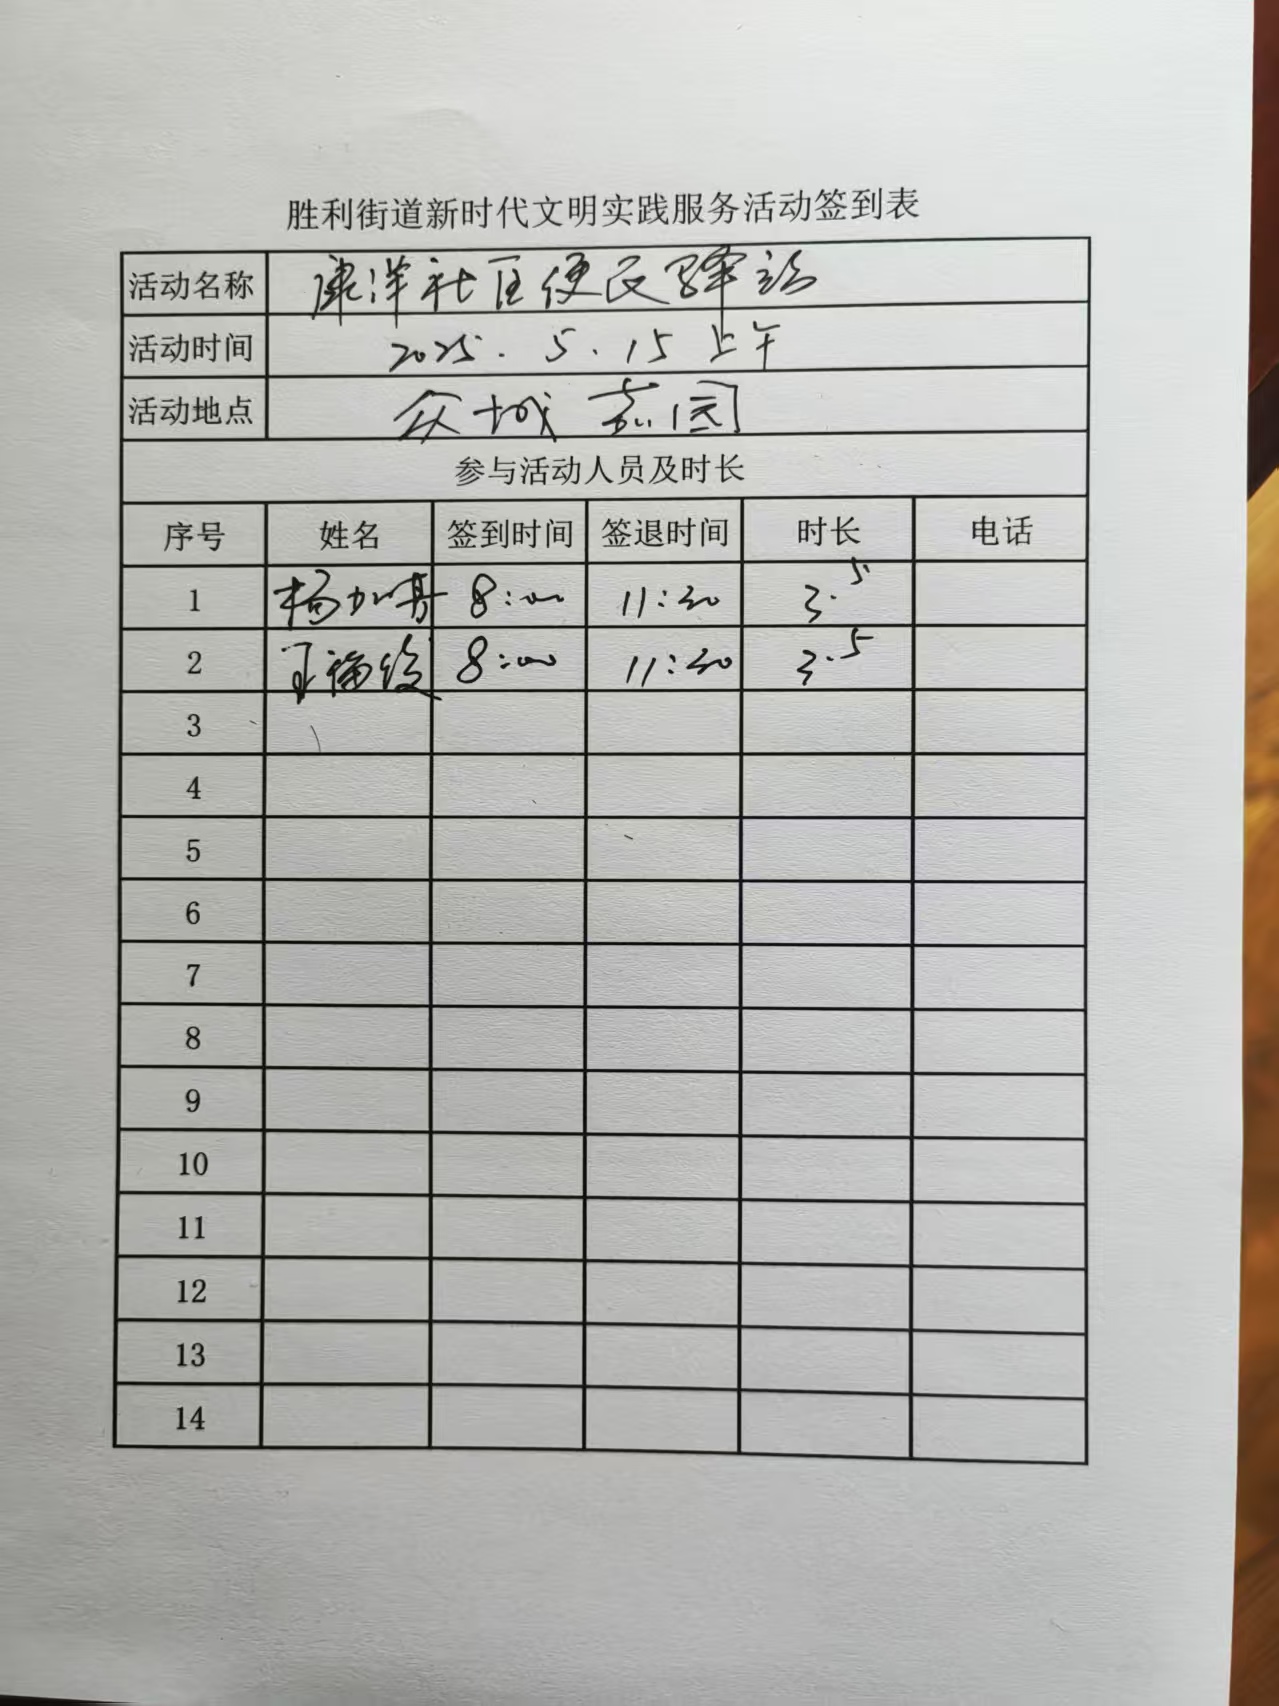 胜利街道新时代文明实践服务活动签到表
活动名称 康洋社区便民驿站
活动时间 2025.5.15上午
活动地点 众城嘉园
参与活动人员及时长
序号 姓名 签到时间 签退时间 时长 电话
1 杨加 8:00 11:30 3.5
2 王福俊 8:00 11:30 3.5
3
4
5
6
7
8
9
10
11
12
13
14